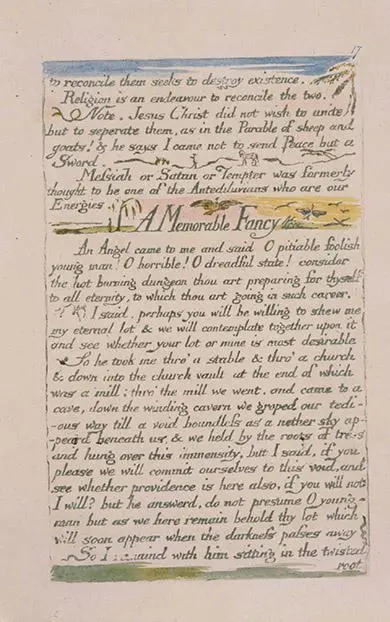 17
to reconcile them seeks to destroy existence.
Religion is an endeavour to reconcile the two.
Note. Jesus Christ did not wish to unite
but to seperate them, as in the Parable of sheep and
goats! & he says I came not to send Peace but a
Sword.
Messiah or Satan or Tempter was formerly
thought to be one of the Antediluvians who are our
Energies.
A Memorable Fancy
An Angel came to me and said O pitiable foolish
young man! O horrible! O dreadful state! consider
the hot burning dungeon thou art preparing for thyself
to all eternity, to which thou art going in such career.
I said. perhaps you will be willing to shew me
my eternal lot & we will contemplate together upon it
and see whether your lot or mine is most desirable
So he took me thro' a stable & thro' a church
& down into the church vault at the end of which
was a mill: thro' the mill we went, and came to a
cave, down the winding cavern we groped our tedi-
-ous way till a void boundless as a nether sky ap-
peard beneath us, & we held by the roots of trees
and hung over this immensity, but I said, if you
please we will commit ourselves to this void, and
see whether providence is here also, if you will not
I will? but he answerd, do not presume O young-
man but as we here remain behold thy lot which
will soon appear when the darkness passes away
So I remaind with him sitting in the twisted
root